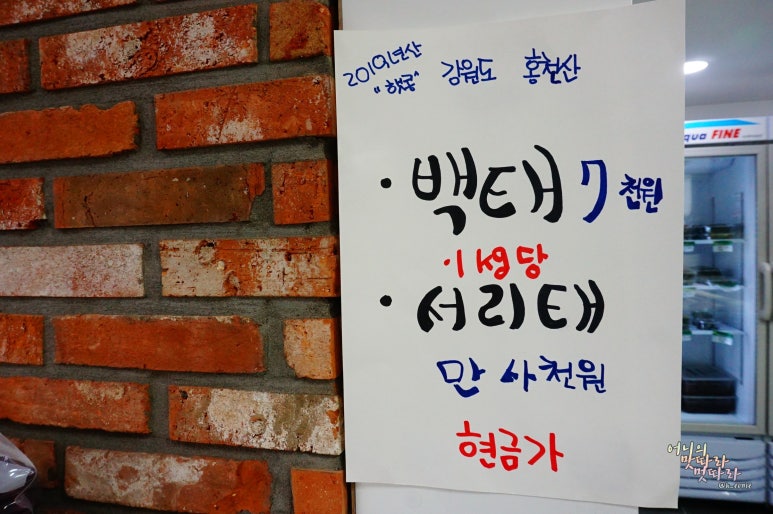 2019년산
"햇콩" 강원도 홍천산
· 백태 7 천원
· 1 성당
· 서리태
만 사천원
현금가
aqua FINE
어니의
맛따라
멋따라